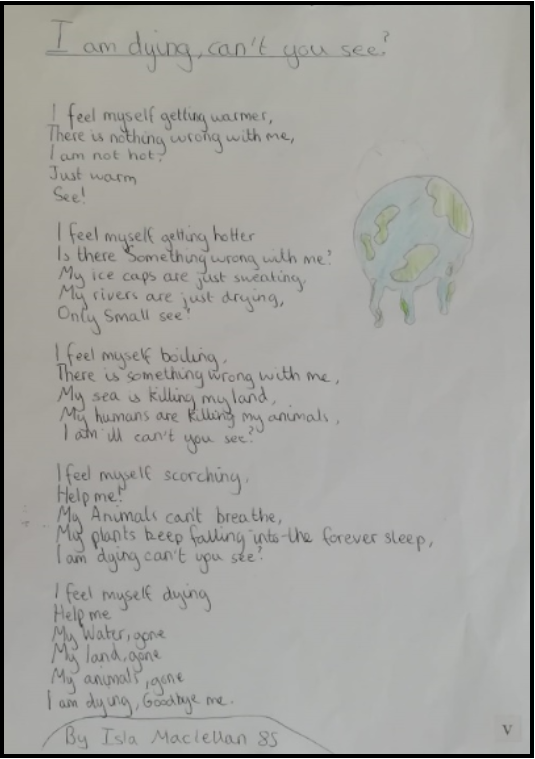 I am dying, can't you see?
I feel myself getting warmer,
There is nothing wrong with me,
I am not hot.
Just warm
See!
I feel myself getting hotter
Is there Something wrong with me?
My ice caps are just sweating,
My rivers are just drying,
Only Small see!
I feel myself boiling,
There is something wrong with me,
My sea is killing my land,
My humans are killing my animals,
I am ill can't you see?
I feel myself scorching,
Help me!
My Animals can't breathe,
My plants keep falling into the forever sleep,
I am dying can't you see?
I feel myself dying
Help me
My Water, gone
My land, gone
My animals, gone
I am dying, Goodbye me.
By Isla Maclellan 8S
V